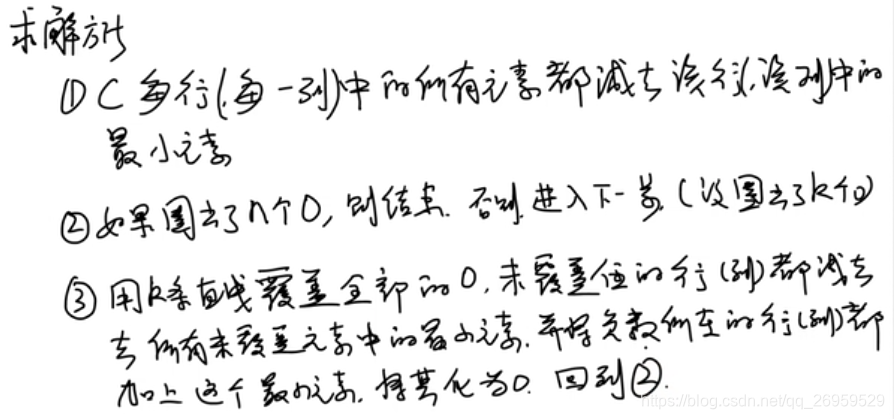 求解方法
① C 每行(每一列)中的所有元素都减去该行(该列)中的
最小元素
② 如果圈出了n个0, 则结束. 否则, 进入下一步. (设圈出了k个0)
③ 用k条直线覆盖全部的0, 未覆盖住的行(列)都减去
去所有未覆盖元素中的最小元素. 并将负数所在的行(列)都
加上这个最小元素. 将其化为0. 回到②.
https://blog.csdn.net/qq_26959529